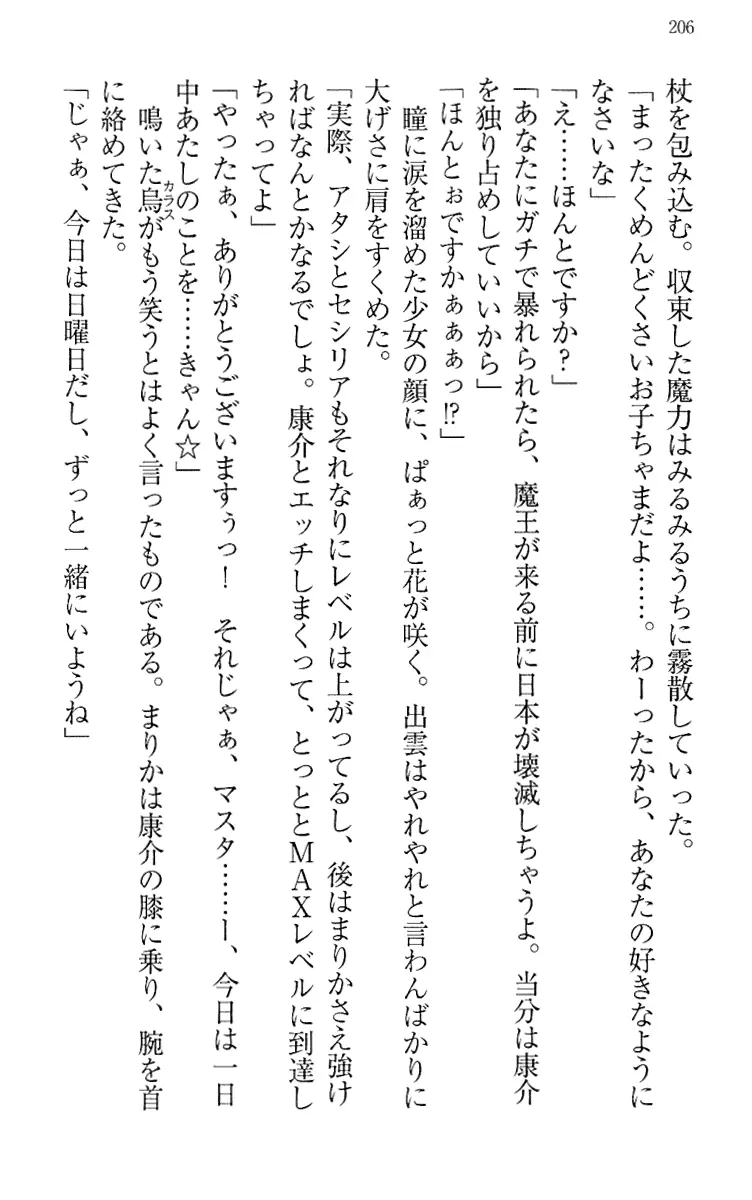 206
杖を包み込む。収束した魔力はみるみるうちに霧散していった。
「まったくめんどくさいお子ちゃまだよ……。わーったから、あなたの好きなように
なさいな」
「え……ほんとですか？」
「あなたにガチで暴れられたら、魔王が来る前に日本が壊滅しちゃうよ。当分は康介
を独り占めしていいから」
「ほんとぉですかぁぁぁっ!?」
瞳に涙を溜めた少女の顔に、ぱぁっと花が咲く。出雲はやれやれと言わんばかりに
大げさに肩をすくめた。
「実際、アタシとセシリアもそれなりにレベルは上がってるし、後はまりかさえ強け
ればなんとかなるでしょ。康介とエッチしまくって、とっととＭＡＸレベルに到達し
ちゃってよ」
「やったぁ、ありがとうございますぅっ！　それじゃぁ、マスタ……ー、今日は一日
中あたしのことを……きゃん☆」
鳴いた烏がもう笑うとはよく言ったものである。まりかは康介の膝に乗り、腕を首
カラス
に絡めてきた。
「じゃぁ、今日は日曜日だし、ずっと一緒にいようね」